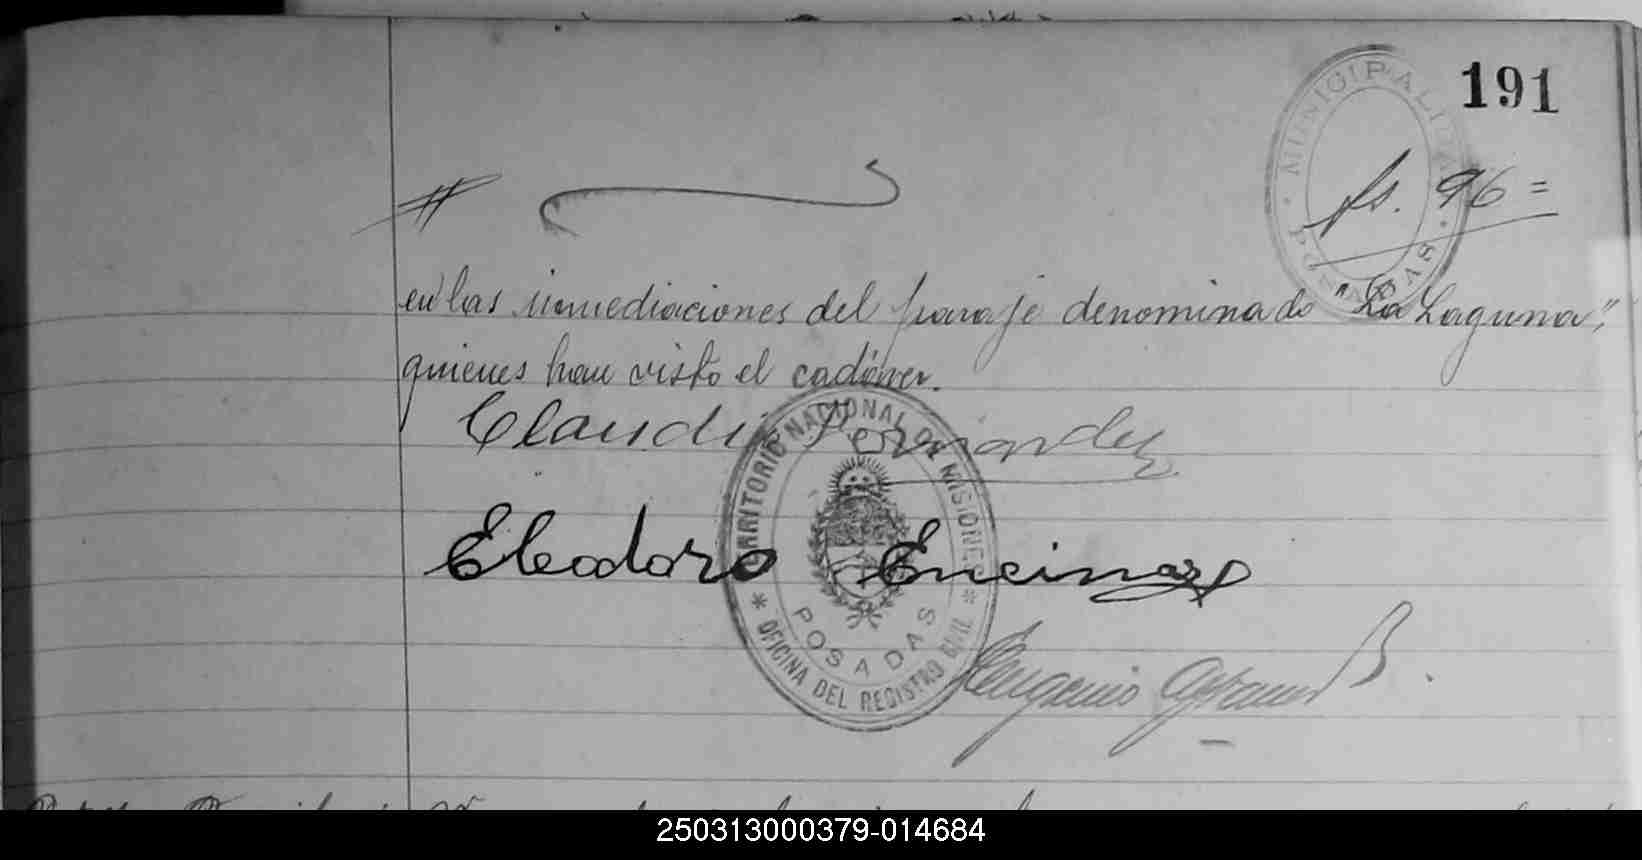 191
MUNICIPALIDAD
POSADAS
fs. 96 =
en las inmediaciones del paraje denominado "La Laguna",
quienes han visto el cadáver.
Claudio Fernandez
TERRITORIO NACIONAL DE MISIONES
Eleodoro Encinas
POSADAS
* OFICINA DEL REGISTRO CIVIL *
Eugenio
250313000379-014684